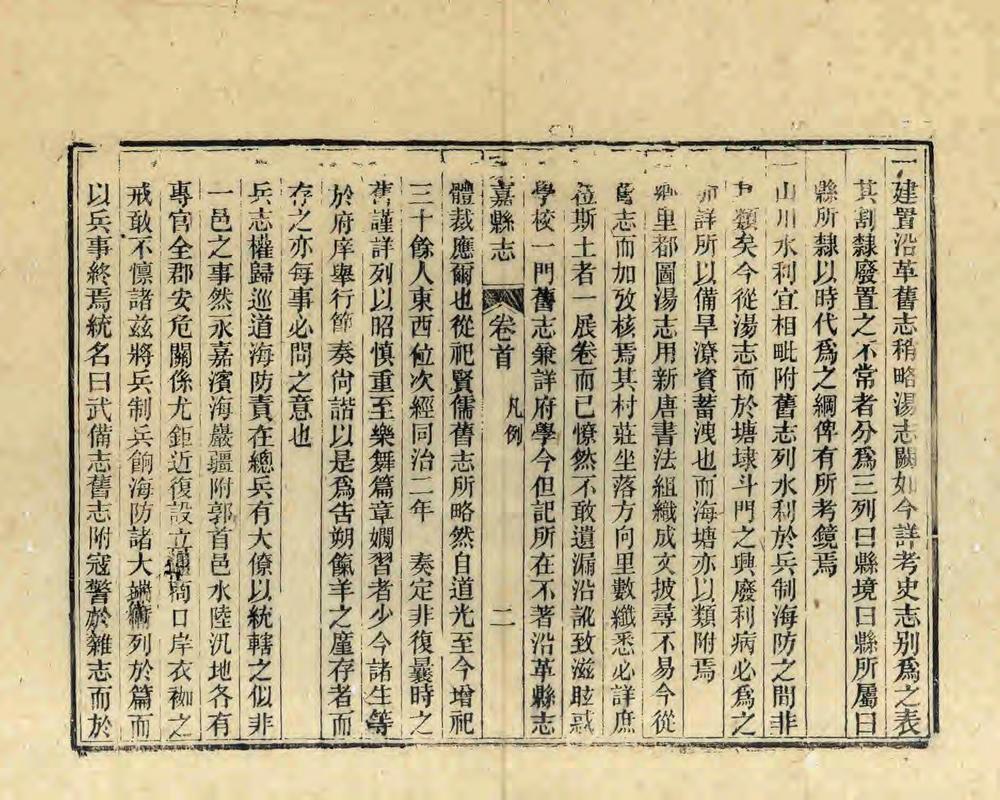 一建置沿革舊志稍略湯志闕如今詳考史志别爲之表
其割隸廢置之不常者分爲三列曰縣境曰縣所屬曰
縣所隸以時代爲之綱俾有所考鏡焉
一山川水利宜相毗附舊志列水利於兵制海防之間非
類矣今從湯志而於塘埭斗門之興廢利病必爲之
詳所以備旱潦資蓄洩也而海塘亦以類附焉
鄉里都圖湯志用新唐書法組織成文披尋不易今從
舊志而加攷核焉其村莊坐落方向里數纖悉必詳庶
莅斯土者一展卷而已憭然不敢遺漏沿訛致滋眩惑
學校一門舊志兼詳府學今但記所在不著沿革縣志
嘉縣志 卷首 凡例 二
體裁應爾也從祀賢儒舊志所略然自道光至今增祀
三十餘人東西位次經同治二年 奏定非復曩時之
舊謹詳列以昭慎重至樂舞篇章嫺習者少今諸生等
於府庠舉行節奏尙諧以是爲告朔餼羊之廑存者而
存之亦每事必問之意也
兵志權歸巡道海防責在總兵有大僚以統轄之似非
一邑之事然永嘉濱海嚴疆附郭首邑水陸汛地各有
專官全郡安危關係尤鉅近復設立口岸衣袽之
戒敢不懍諸兹將兵制兵餉海防諸大列於篇而
以兵事終焉統名曰武備志舊志附寇警於雜志而於